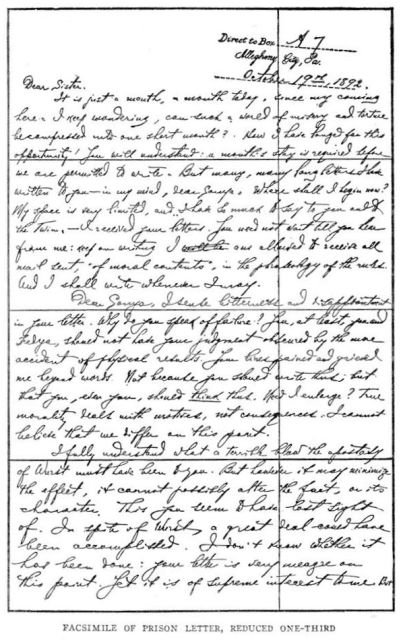 Direct to Box A 7
Allegheny City, Pa.
October 19th, 1892.
Dear Sister.
It is just a month, a month today, since my coming
here. I keep wondering, can such a world of misery and torture
be compressed into one short month?. How I have longed for this
opportunity! You will understand: a month's stay is required before
we are permitted to write. But many, many long letters I have
written to you—in my mind, dear Sonya. Where shall I begin now?
My space is very limited, and I have so much to say to you and to
the Twin. — I received your letters. You need not wait till you hear
from me: keep on writing. I am allowed to receive all
mail sent, "of moral contents", in the phraseology of the rules.
And I shall write whenever I may.
Dear Sonya, I sense bitterness and disappointment
in your letter. Why do you speak of failure? You, at least, you and
Fedya, should not have your judgment obscured by the mere
accident of physical results. Your lines pained and grieved
me beyond words. Not because you should write thus; but
that you, even you, should think thus. Need I enlarge? True
morality deals with motives, not consequences. I cannot
believe that we differ on this point.
I fully understand what a terrible blow the apostasy
of Wurst must have been to you. But however it may minimize
the effect, it cannot possibly alter the fact, or its
character. This you seem to have lost sight
of. In spite of Wurst, a great deal could have
been accomplished. I don't know whether it
has been done: your letter is very meagre on
this point. Yet it is of supreme interest to me. But
FACSIMILE OF PRISON LETTER, REDUCED ONE-THIRD